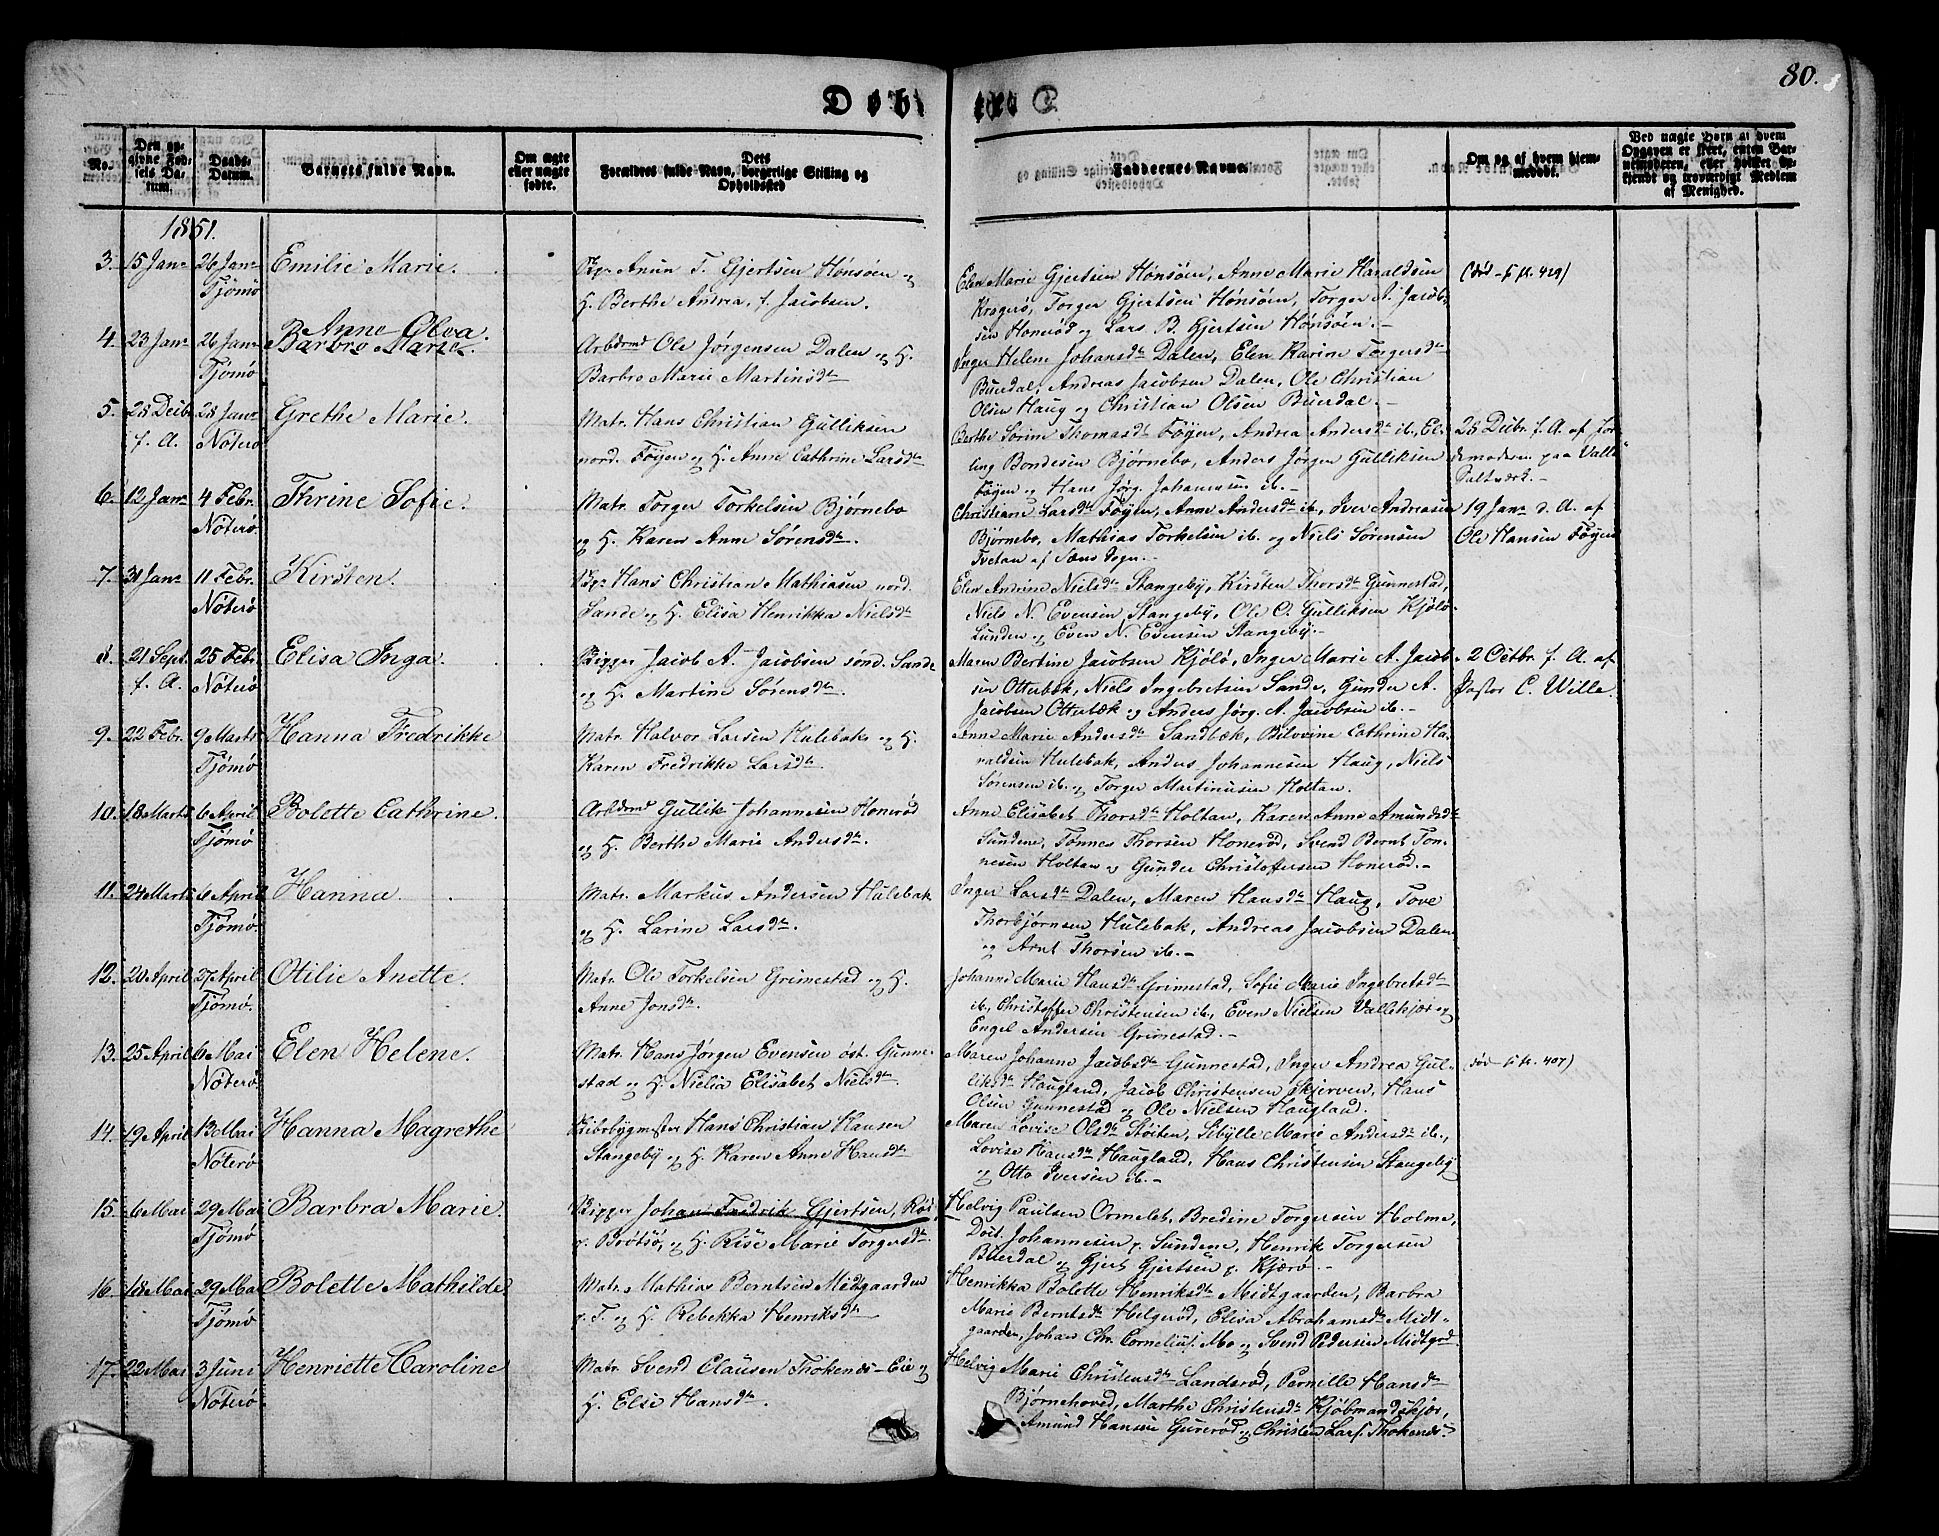 80.
Døbte
No.
Den opgivne Fødsels Datum.
Daabs-Datum.
Barnets fulde Navn.
Om ægte eller uægte fødte.
Dets Forældres fulde Navn, borgerlige Stilling og Opholdssted
Faddernes Navne.
Om og af hvem hjemmedøbt.
Ved uægte Børn at hvem Opgaven er skeet, enten Barnemoderen, eller hvilket bekjendt og troværdigt Medlem af Menighed.
1851.
3. 15 Janr 26 Janr Tjømø Emilie Marie.
Anun T. Gjertsen Hønsøen og
H. Berthe Andrea, f. Jacobsen.
Elen Marie Gjertsen Hønsöen, Anne Marie Haraldsen
Krogerö, Torger Gjertsen Hönsöen, Torger A. Jacob-
sen Honerød og Lars B. Gjertsen Hönsöen.-
(død - fl. 429)
4. 23 Janr 26 Janr Tjømø Anne Olea
Barbro Marie.
Arbdsmd Ole Jørgensen Dalen og H.
Barbro Marie Martinsdtr
Inger Helene Johansdtr Dalen, Elen Karine Torgersdtr
Buerdal, Andreas Jacobsen Dalen, Ole Christian
Olsen Haug og Christian Olsen Buerdal.-
5. 28 Decbr f. A. 28 Janr Nöterö Grethe Marie.
Matr. Hans Christian Gulliksen
nord. Föyen og H. Anne Cathrine Larsdtr
Berthe Sørine Thomasdtr Föyen, Andrea Andersdtr ib., El-
ling Bondesen Bjørnebo, Anders Jörgen Gulliksen
Föyen og Hans Jørg. Johannesen ib.-
28 Decbr. f. A. af Jor-
demoderen paa Vallö
Saltværk.-
6. 12 Janr 4 Febr. Nöterö. Thrine Sofie.
Matr. Torger Torkelsen Bjørnebo
og H. Karen Anne Sørensdtr.
Christiane Larsdtr Föyen, Anne Andersdtr ib, Iver Andreasen
Bjørnebo, Mathias Torkelsen ib. og Niels Sørensen
Tvetan af Sems Sogn.-
19 Janr d. A. af
Ole Hansen Föyen
7. 31 Janr 11 Febr. Nöterö Kirsten.
Hans Christian Mathiasen nord.
Sande og H. Elisa Henrikka Nielsdtr
Elen Andrine Nielsdtr Stangeby, Kirsten Thorsdtr Gunnestad,
Niels N. Evensen Stangeby, Ole C. Gulliksen Kjölö
Lunden og Even N. Evensen Stangeby.-
8. 21 Sept. f. A. 25 Febr. Nöterö Elisa Inga.
Skipper Jacob A. Jacobsen sønd. Sande
og H. Martine Sørensdtr.
Maren Bertine Jacobsen Kjölö, Inger Marie A. Jacob-
sen Otterbæk, Niels Ingebretsen Sande, Gunder A.
Jacobsen Otterbæk og Anders Jørg. A. Jacobsen ib.-
2 Octbr. f. A. af
Pastor C. Wille.
9. 22 Febr. 9 Marts Tjømø Hanna Fredrikke
Matr. Halvor Larsen Hulebak og H.
Karen Fredrikke Larsdtr.
Anne Marie Andersdtr Sandbæk, Cathrine Ha-
raldsen Hulebak, Anders Johannesen Haug, Niels
Sørensen ib. og Torger Martinusen Holtan.
10. 18 Marts 6 April Tjømø Bolette Cathrine.
Arbdsmd Gullik Johannesen Honerød
og H. Berthe Marie Andersdtr.
Anne Elisabet Thorsdtr Holtan, Karen Anne Amundsdtr
Sundene, Tønnes Thorsen Honerød, Svend Bernt Ton-
nesen Holtan og Gunder Christoffersen Honerød.-
11. 24 Marts 6 April Tjømø. Hanna.
Matr. Markus Andersen Hulebak
og H. Larine Larsdtr.
Inger Larsdtr Dalen, Maren Hansdtr Haug, Tove
Thorbjørnsen Hulebak, Andreas Jacobsen Dalen
og Arnt Thorsen ib.-
12. 20 April 27 April Tjømø. Otilie Anette.
Matr. Ole Torkelsen Grimestad og H.
Anne Jonsdtr.
Johanne Marie Hansdtr Grimestad, Sofie Marie Ingebretsdtr
ib., Christoffer Christensen ib., Even Nielsen Vallekjær og
Engel Andersen Grimestad.-
13. 25 April 6 Mai Nöterö Elen Helene.
Matr. Hans Jørgen Evensen øst. Gunne-
stad og H. Nielia Elisabet Nielsdtr.
Maren Johanne Jacobsdtr Gunnestad, Inger Andrea Gul-
liksdtr Haugland, Jacob Christensen Skjerven, Hans
Olsen Gunnestad og Ole Nielsen Haugland.
død - fl. 407)
14. 19 April 13 Mai Nöterö Hanna Magrethe
Skibsbygmester Hans Christian Hansen
Stangeby og H. Karen Anne Hansdtr
Maren Lovise Olsdtr Stöiten, Sibylle Marie Andersdtr ib.,
Lovise Hansdtr Haugland, Hans Christensen Stangeby
og Otto Iversen ib.-
15. 6 Mai 29 Mai Tjømø Barbra Marie.
Skipper Johan Fredrik Gjertsen, Röd
p. Brötsö, og H. Rise Marie Torgersdtr.
Helvig Paulsen Ormelet, Bredine Torgersen Holme,
Johannesen p. Sundene, Henrik Torgersen
Buerdal og Gjert Gjertsen p. Kjærö.-
16. 18 Mai 29 Mai Tjømø Bolette Mathilde
Matr. Mathias Berntsen Midtgaarden
p. T. og H. Rebekka Henriksdtr
Henrikka Bolette Henriksdtr Midtgaarden, Barbra
Marie Berntsdtr Helgerød, Elisa Abrahamsdtr Midt-
gaarden, Johan Chr. Cornelius. Mo og Svend Pedersen Midtgrd
17. 22 Mai 3 Juni Nöterö Henriette Caroline
Matr. Svend Clausen Thokends-Eie og
H. Else Hansdtr.
Helvig Marie Christensdtr Landsrød, Pernille Hansdtr
Bjørnehoved, Marthe Christensdtr Kjøbmandskjær,
Amund Hansen Gurerød og Christen Lars. Thokends.